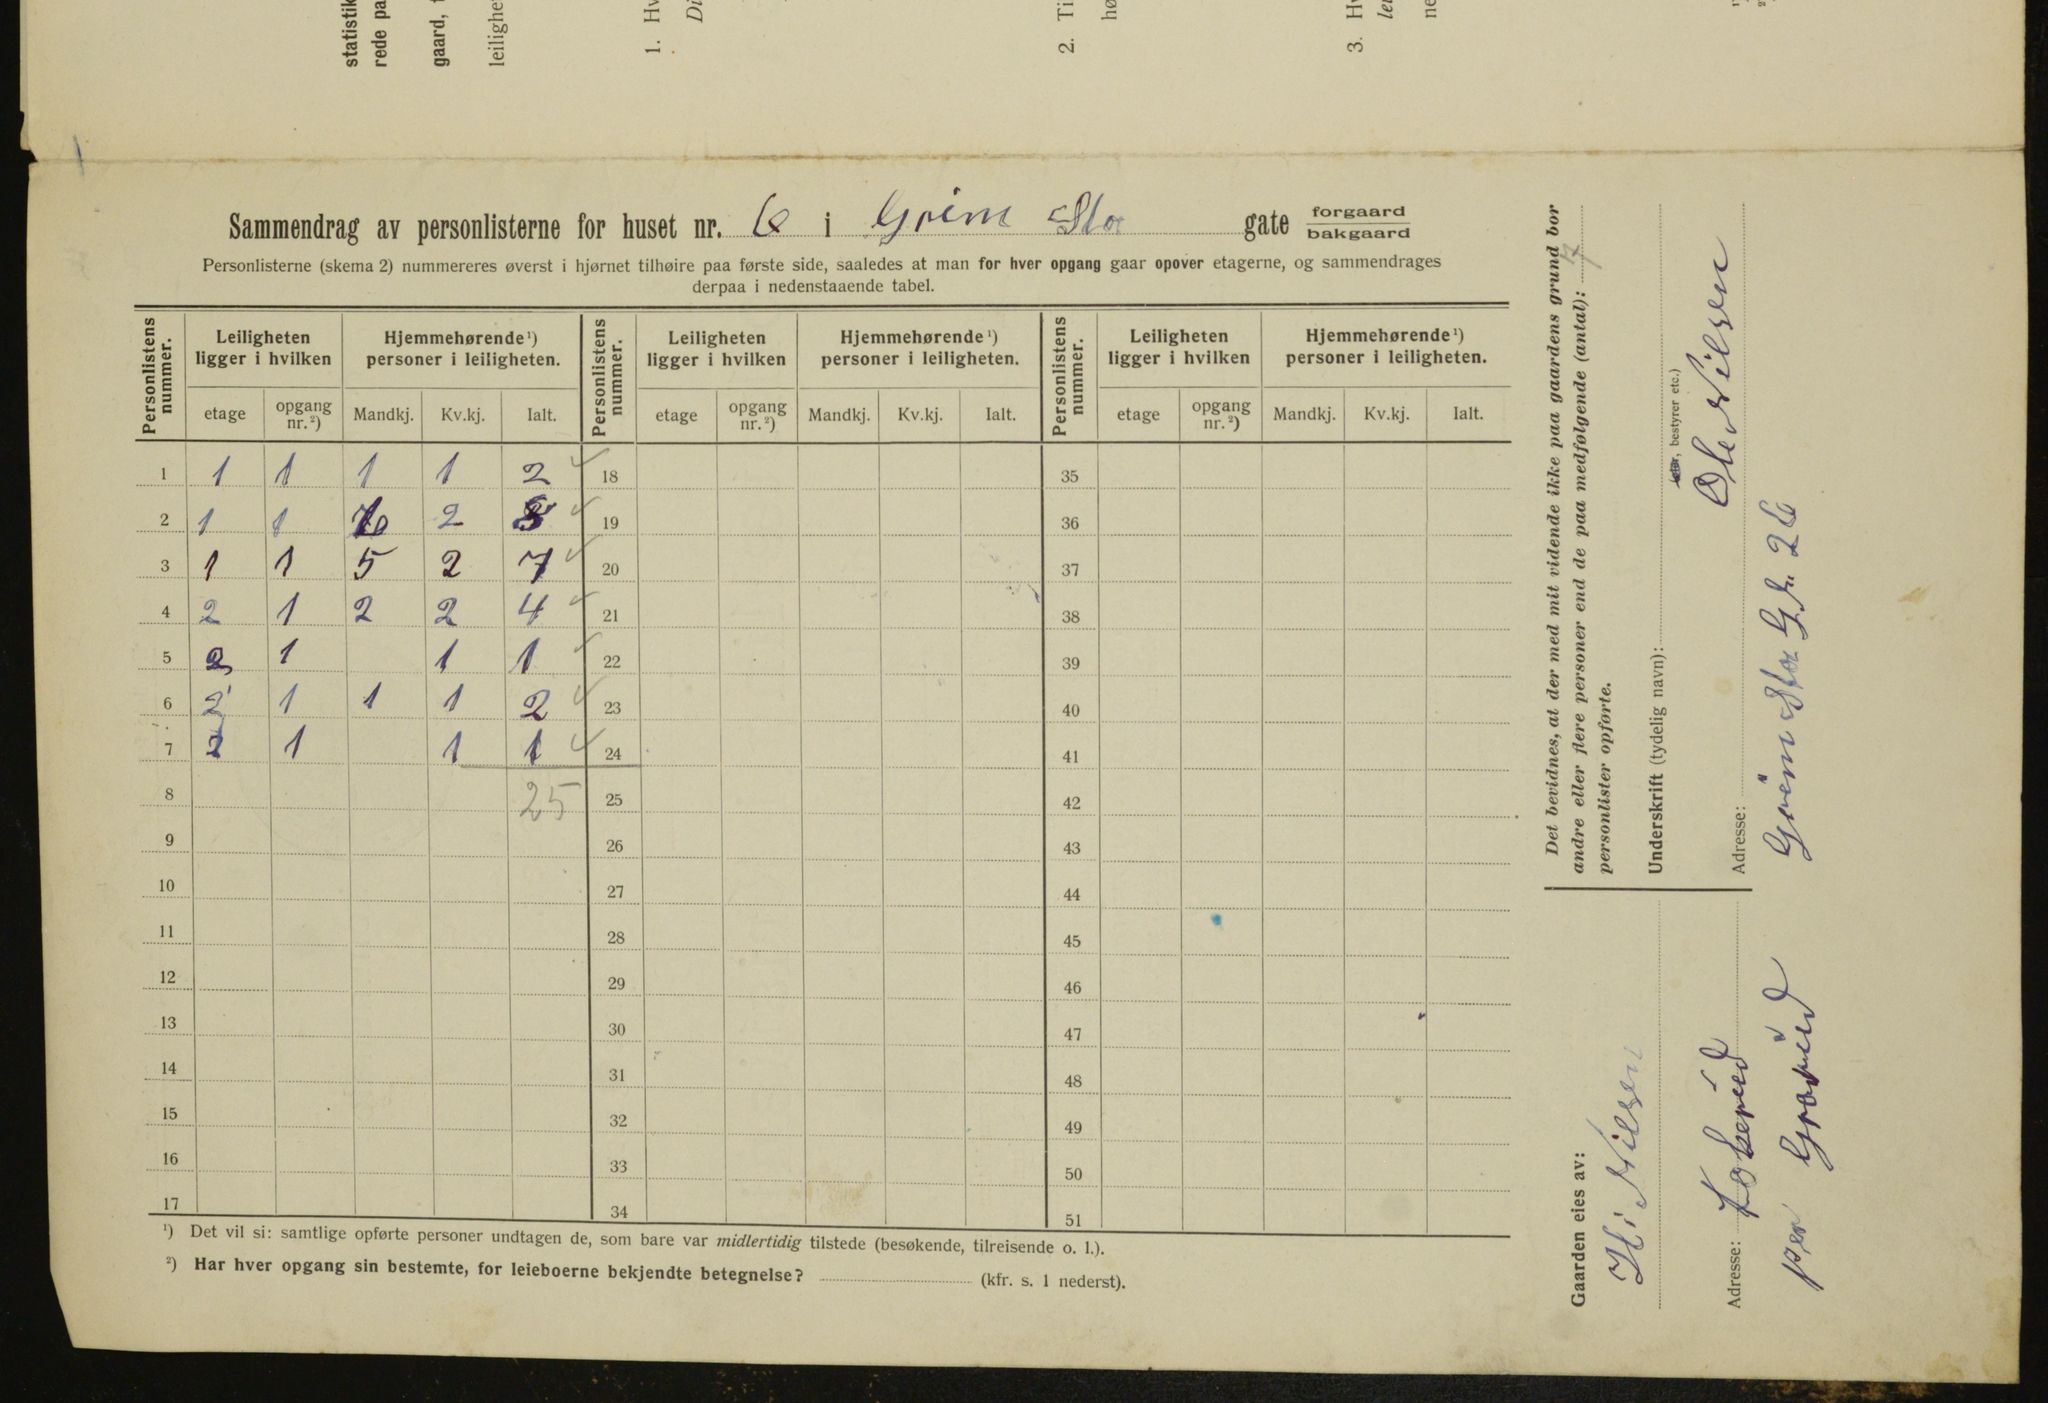 statistik
rede pa
gaard, t
leilighe
1. Hv
Di
2. Ti
hø
3. Hv
lei
ne
Sammendrag av personlisterne for huset nr. 6 i Grims Sta gate forgaard
bakgaard
Personlisterne (skema 2) nummereres øverst i hjørnet tilhøire paa første side, saaledes at man for hver opgang gaar opover etagerne, og sammendrages
derpaa i nedenstaaende tabel.
Personlistens nummer. Leiligheten ligger i hvilken Hjemmehørende ¹) personer i leiligheten. Personlistens nummer. Leiligheten ligger i hvilken Hjemmehørende ¹) personer i leiligheten. Personlistens nummer. Leiligheten ligger i hvilken Hjemmehørende ¹) personer i leiligheten.
etage opgang nr. ²) Mandkj. Kv.kj. Ialt. etage opgang nr. ²) Mandkj. Kv.kj. Ialt. etage opgang nr. ²) Mandkj. Kv.kj. Ialt.
1 1 1 1 1 2 ✓ 18 35
2 1 1 6 2 8 ✓ 19 36
3 1 1 5 2 7 ✓ 20 37
4 2 1 2 2 4 ✓ 21 38
5 2 1 1 1 ✓ 22 39
6 2 1 1 1 2 ✓ 23 40
7 2 1 1 1 ✓ 24 41
8 25 25 42
9 26 43
10 27 44
11 28 45
12 29 46
13 30 47
14 31 48
15 32 49
16 33 50
17 34 51
¹) Det vil si: samtlige opførte personer undtagen de, som bare var midlertidig tilstede (besøkende, tilreisende o. l.).
²) Har hver opgang sin bestemte, for leieboerne bekjendte betegnelse? (kfr. s. 1 nederst).
Det bevidnes, at der med mit vidende ikke paa gaardens grund bor
andre eller flere personer end de paa medfølgende (antal): 7
personlister opførte.
Underskrift (tydelig navn):
, bestyrer etc.)
Ole Nilsen
Adresse:
Grim Sta Gt. 26
Gaarden eies av:
H. Nilsen
Adresse:
pr